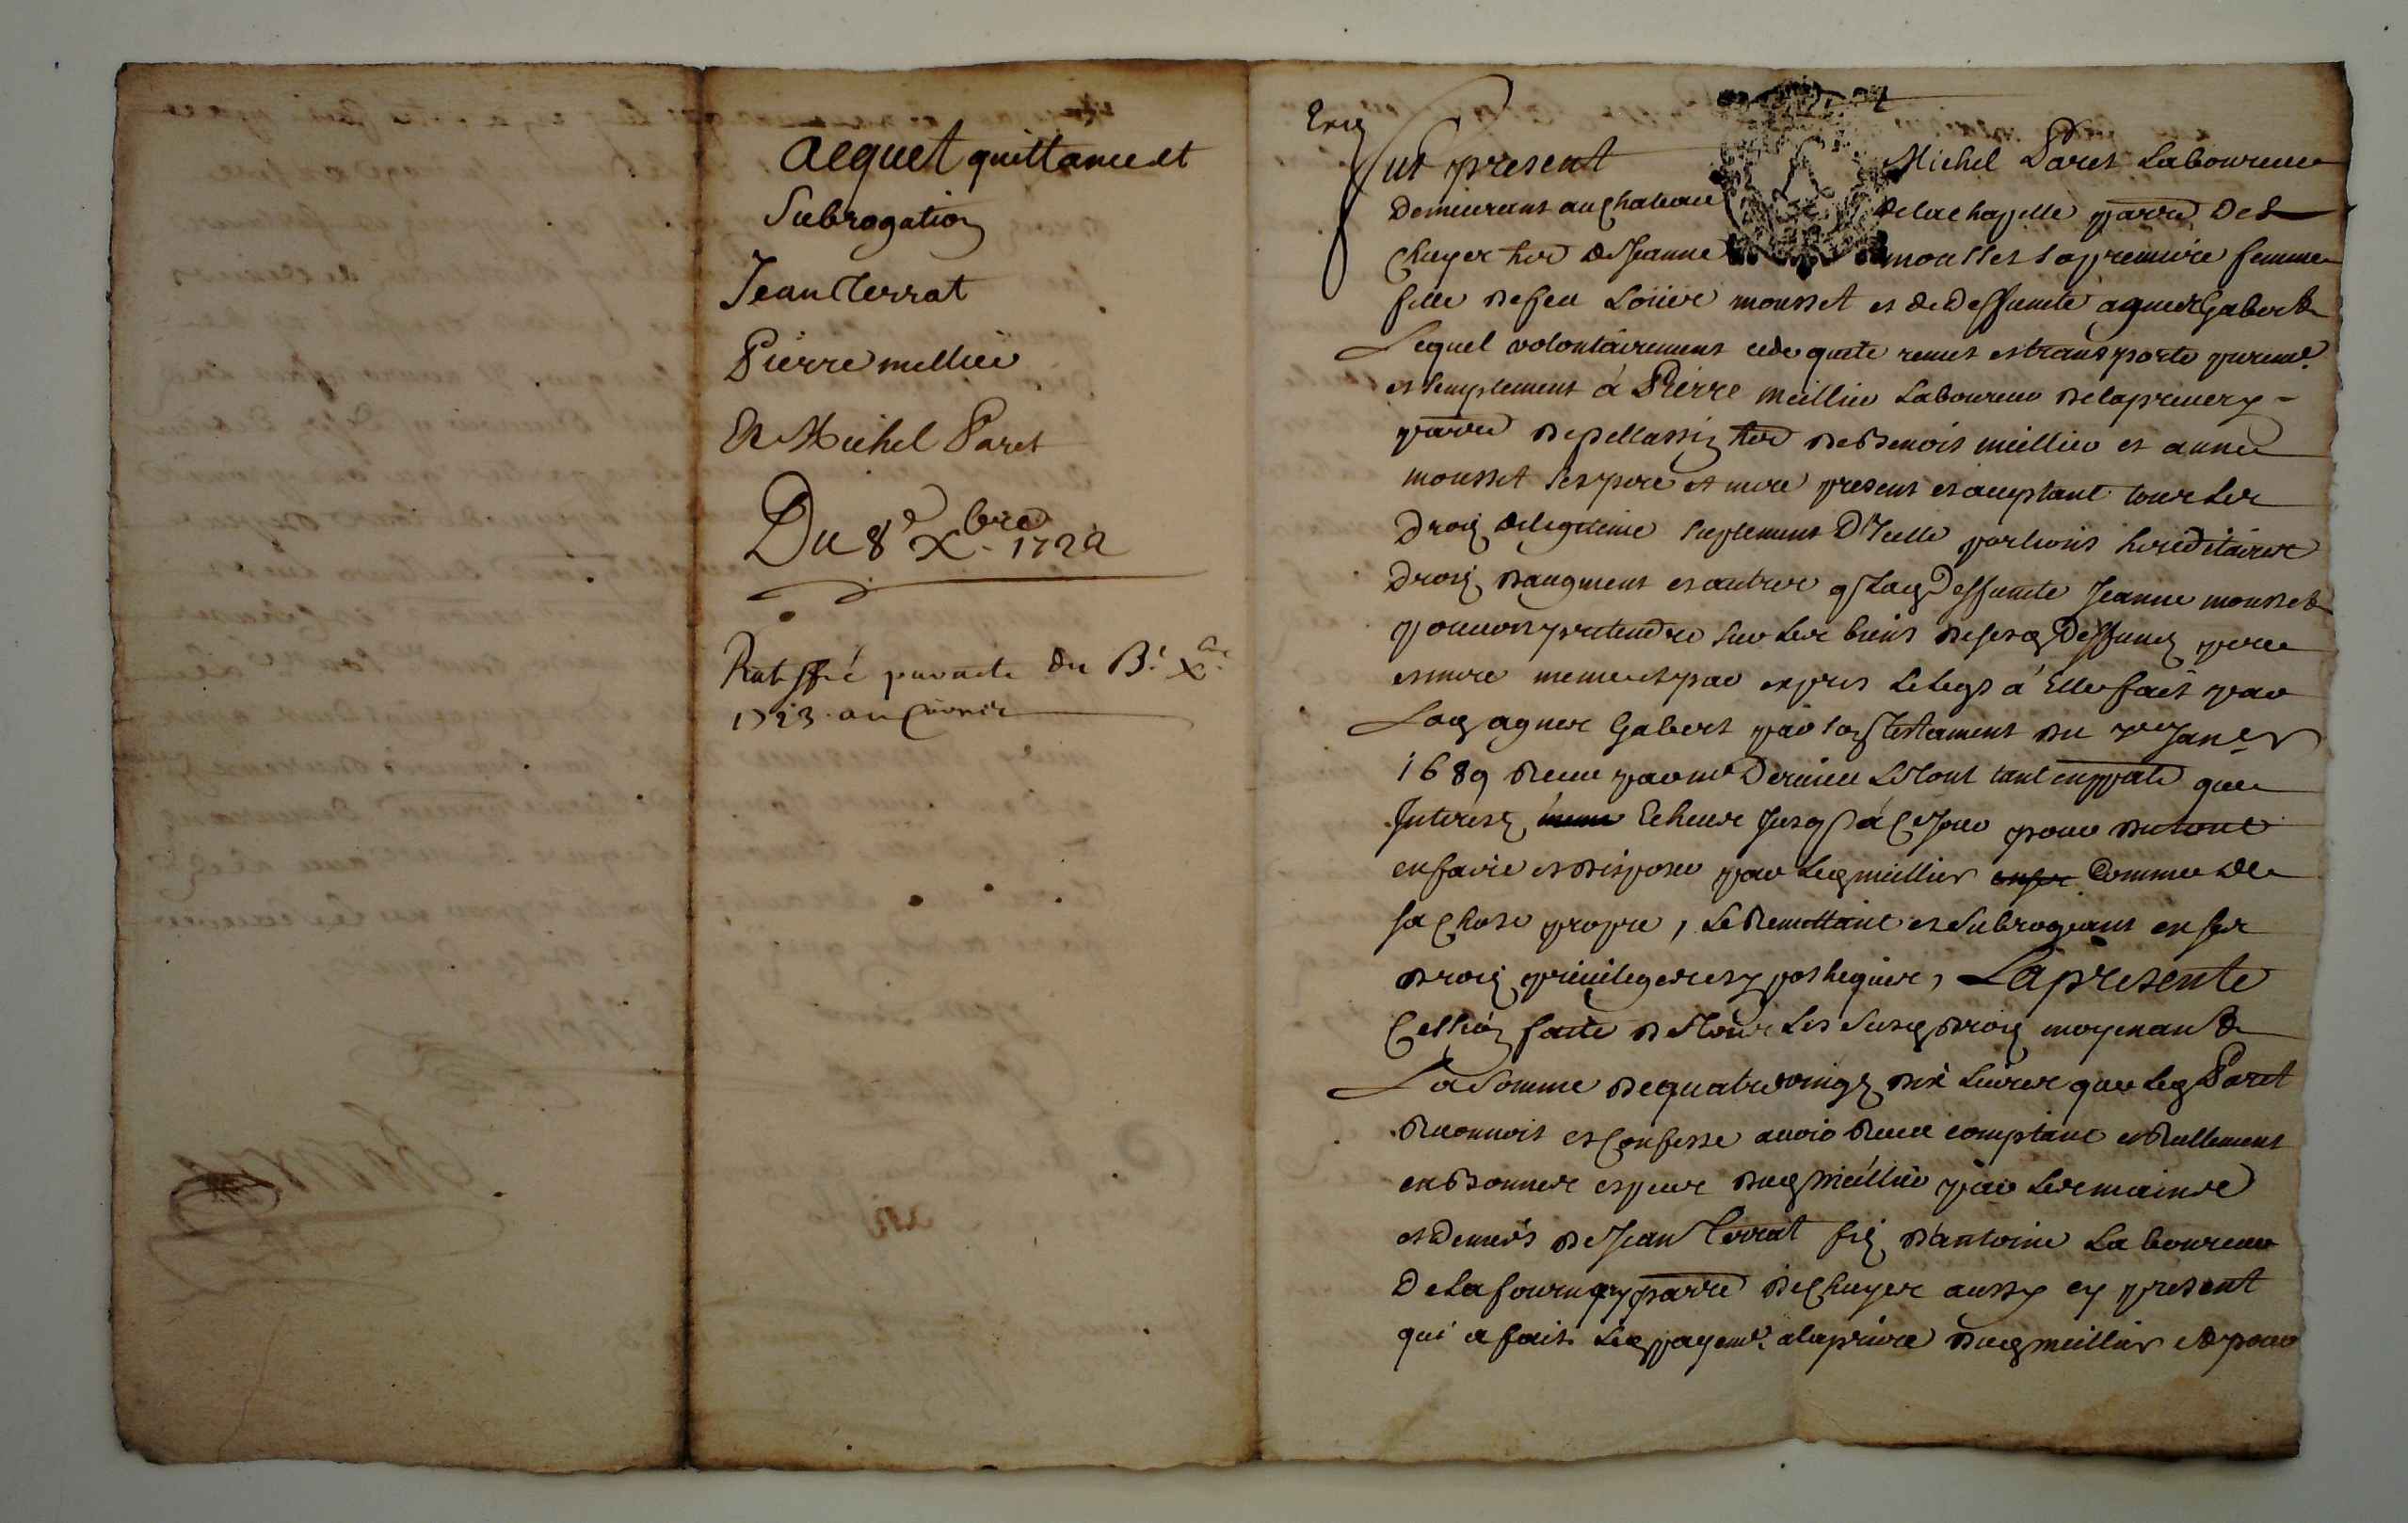 Acquet quittance et
Subrogation
Jean Terrat
Pierre mellier
Et Michel Paret
Du 8e Xbre 1722
Ratiffié par acte du Xbre
1723
fut present Michel Paret Laboureur
Demeurant au chateau de la chapelle parre De
Chuyer her de Jeanne mousset sa premiere femme
fille de feu mousset et de deffuncte agnes Gabert
Lequel volontairement cede quite remet et transporte puremt
et simplement à Pierre meillier Laboureur de
parre de pellassin her de Benoit meillier et anne
mousset ses pere et mere present et acceptant tous les
Droiz de legitime suplement D'Icelle portions hereditaires
Droiz d'augment et autres q lad Deffuncte Jeanne mousset
pouvoit pretendre sur les biens de sesd Deffuncz pere
et mere meme et par exprès Le legs à Elle fait par
Lad agnes Gabert par sond testament du Janer
1689 Receu par me Le tout tant en que
Interestz Echeus Jusq à Ce Jour pour du tout
en faire et disposer par led meillier Comme de
sa Chose propre, Le Remettant et Subrogeant en ses
droiz privileges et ypotheques, La presente
Cession faite de tous Les susd droiz moyenant
La Somme de quatre vingtz dix Livres que led Paret
Reconnoit et Confesse avoir Receu comptant et Reellement
en dud meillier par les mains
et deniers de Jean Terrat filz d'antoine Laboureur
De La parre de Chuyer aussy cy present
qui a fait Led payemt a la priere dud meillier et pour